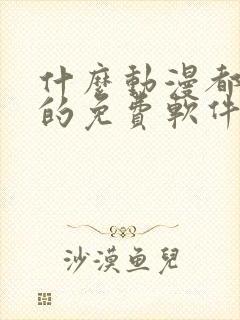 什麼動漫都
的免費軟件
沙漠鱼兒